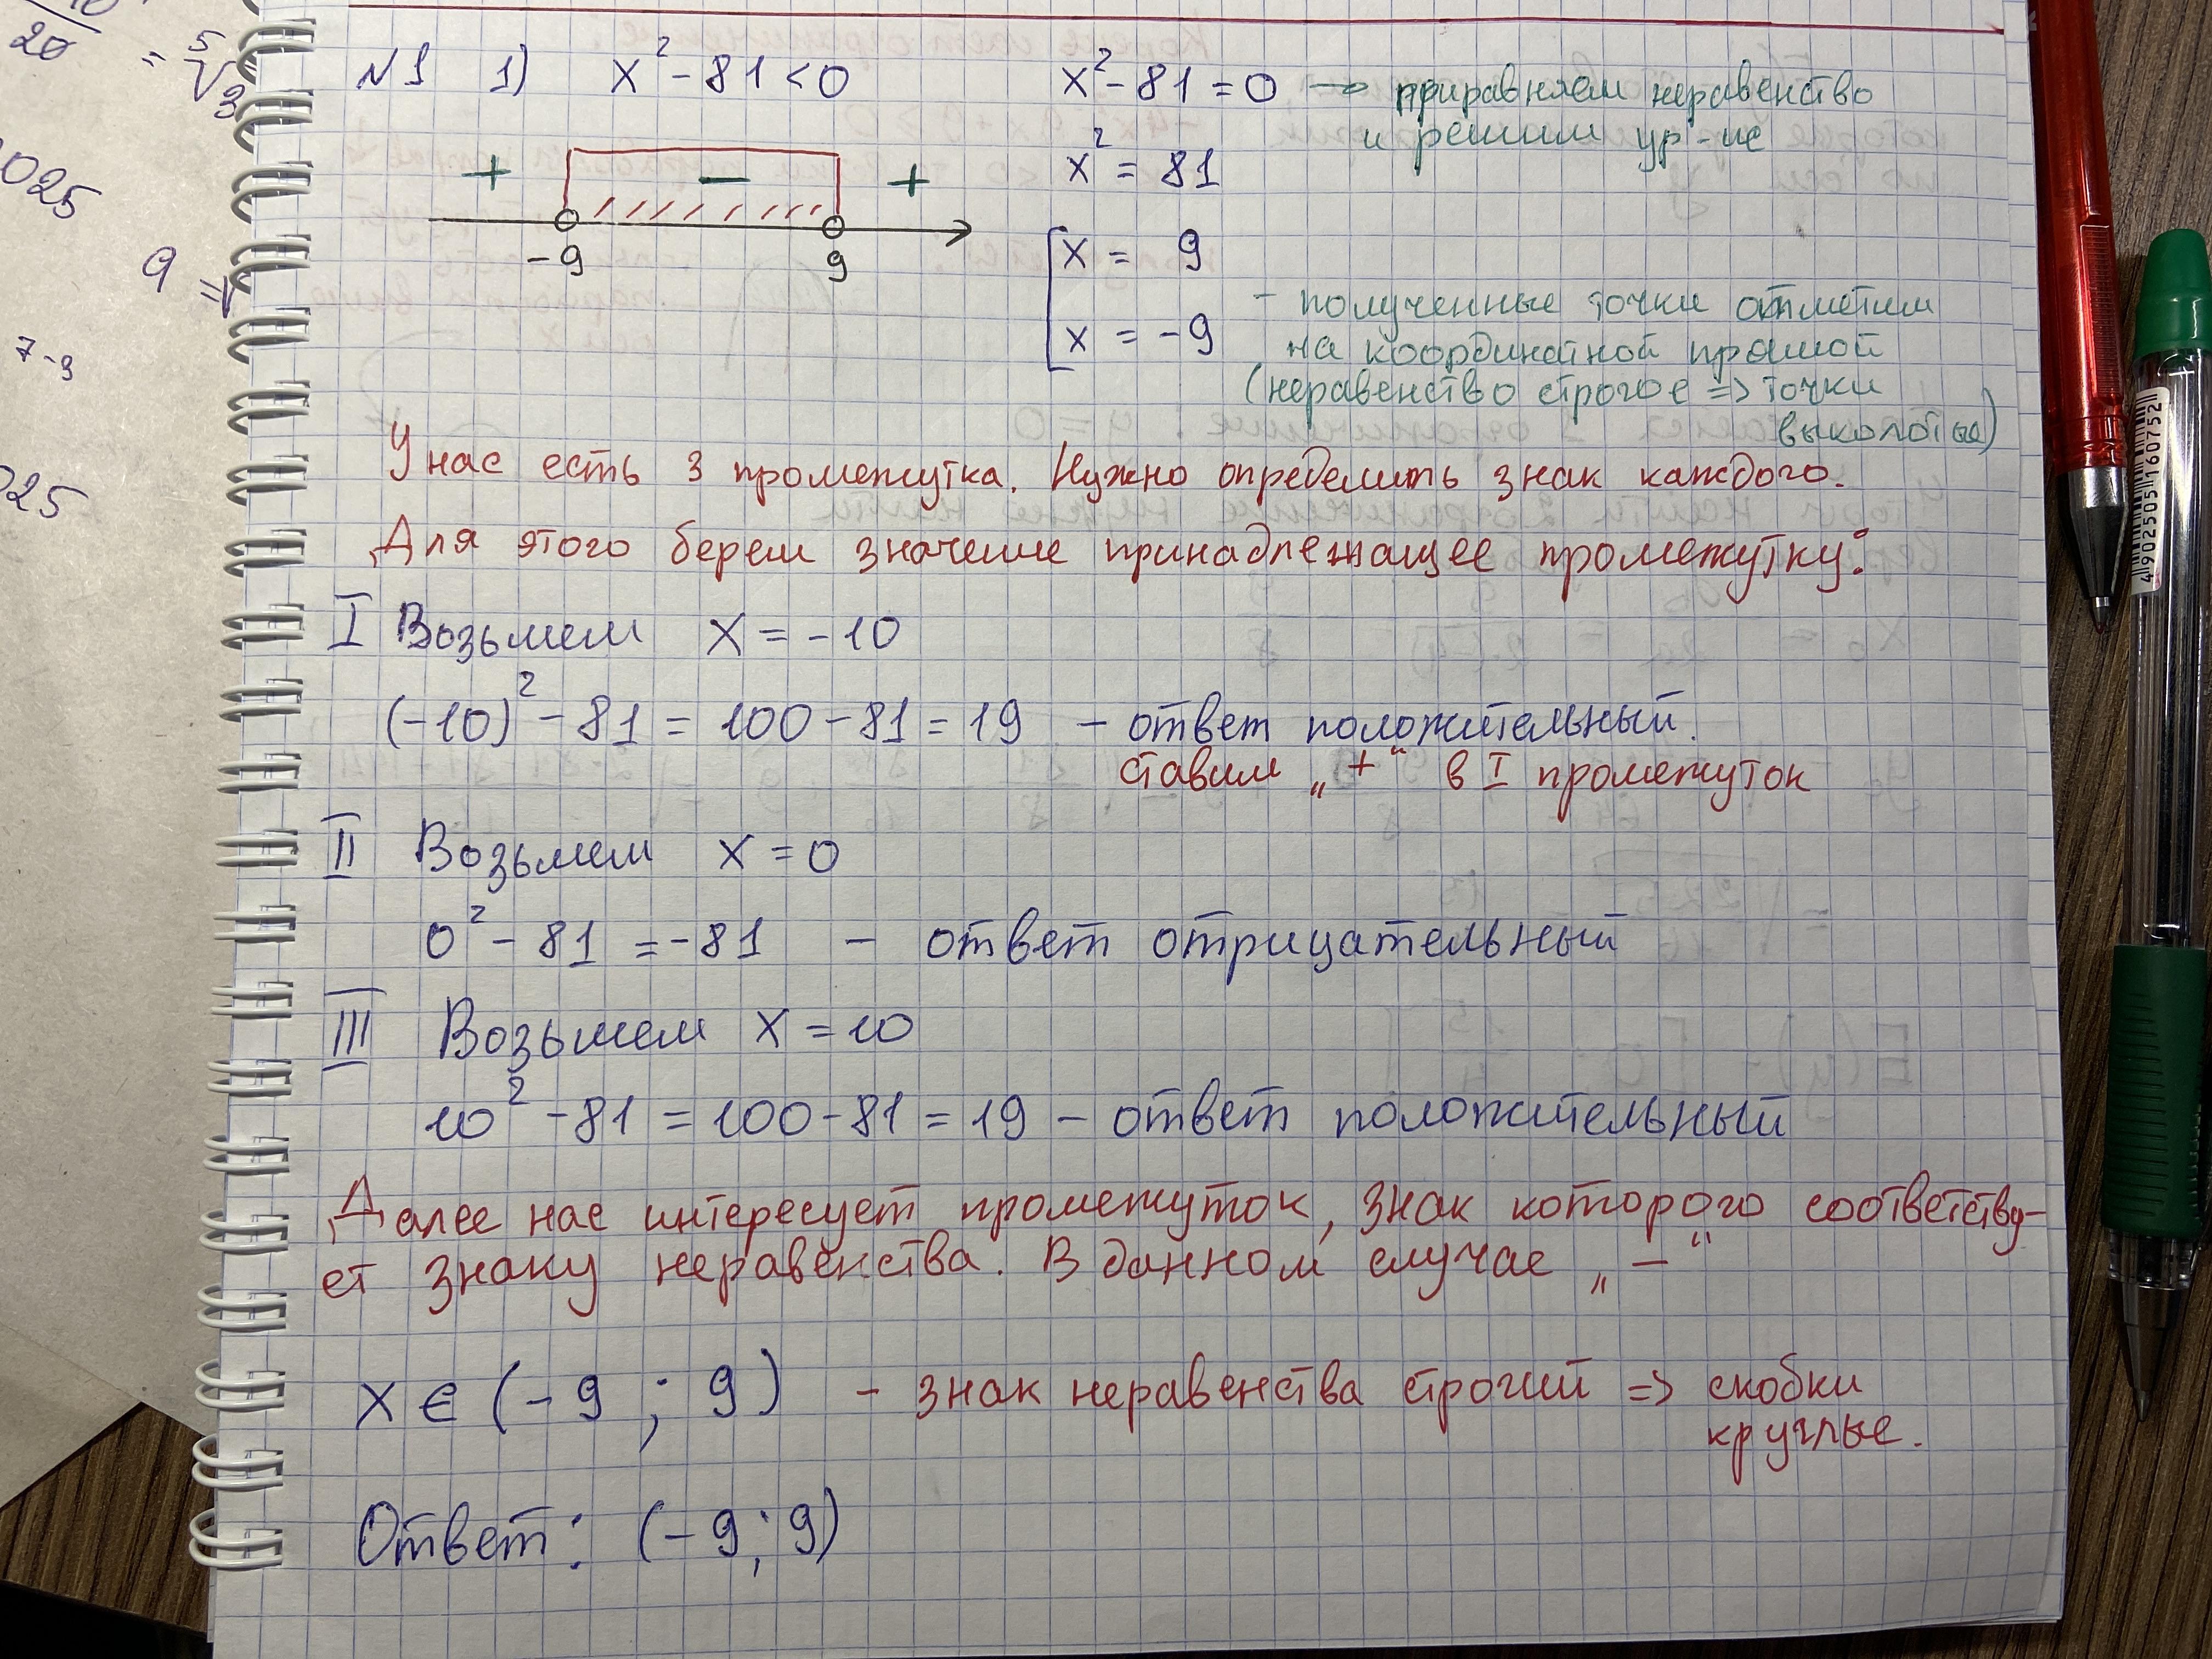 N1 1) x² - 81 < 0
x² - 81 = 0 → приравняем неравенство
и решим ур-ие
x² = 81
+ − +
-9 9
x = 9
x = -9
- полученные точки отметим
на координатной прямой
(неравенство строгое => точки
выколотые)
У нас есть 3 промежутка. Нужно определить знак каждого.
Для этого берем значение принадлежащее промежутку:
I Возьмем x = -10
(-10)² - 81 = 100 - 81 = 19 - ответ положительный.
ставим „+“ в I промежуток
II Возьмем x = 0
0² - 81 = -81 - ответ отрицательный
III Возьмем x = 10
10² - 81 = 100 - 81 = 19 - ответ положительный
Далее нас интересует промежуток, знак которого соответству-
ет знаку неравенства. В данном случае „−“
x ∈ (-9 ; 9) - знак неравенства строгий => скобки
круглые.
Ответ: (-9; 9)
20 = 5
025
9 =
7-9
025
4902505160752